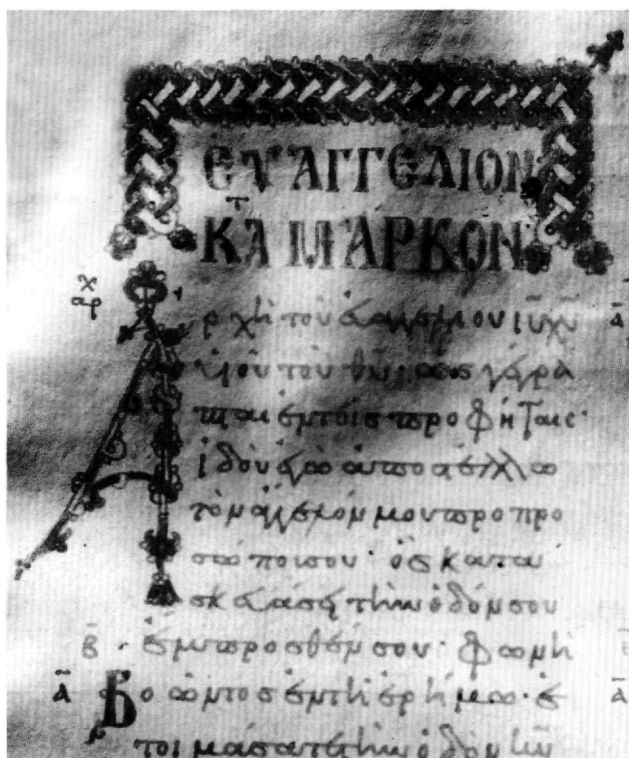 ΕΥΑΓΓΕΛΙΟΝ
ΚΑΤ ΜΑΡΚΟΝ
Ἀρχὴ τοῦ εὐαγγελίου ιῡ χῡ
υἱοῦ τοῦ θῡ· ὡς γέγρα
πται ἐν τοῖς προφήταις·
ἰδοὺ ἐγὼ ἀποστέλλω
τὸν ἄγγελόν μου πρὸ προ
σώπου σου· ὃς κατα
σκευάσει τὴν ὁδόν σου
ἔμπροσθέν σου· φωνὴ
Βοῶντος ἐν τῇ ἐρήμῳ· ἑ
τοιμάσατε τὴν ὁδὸν κῡ